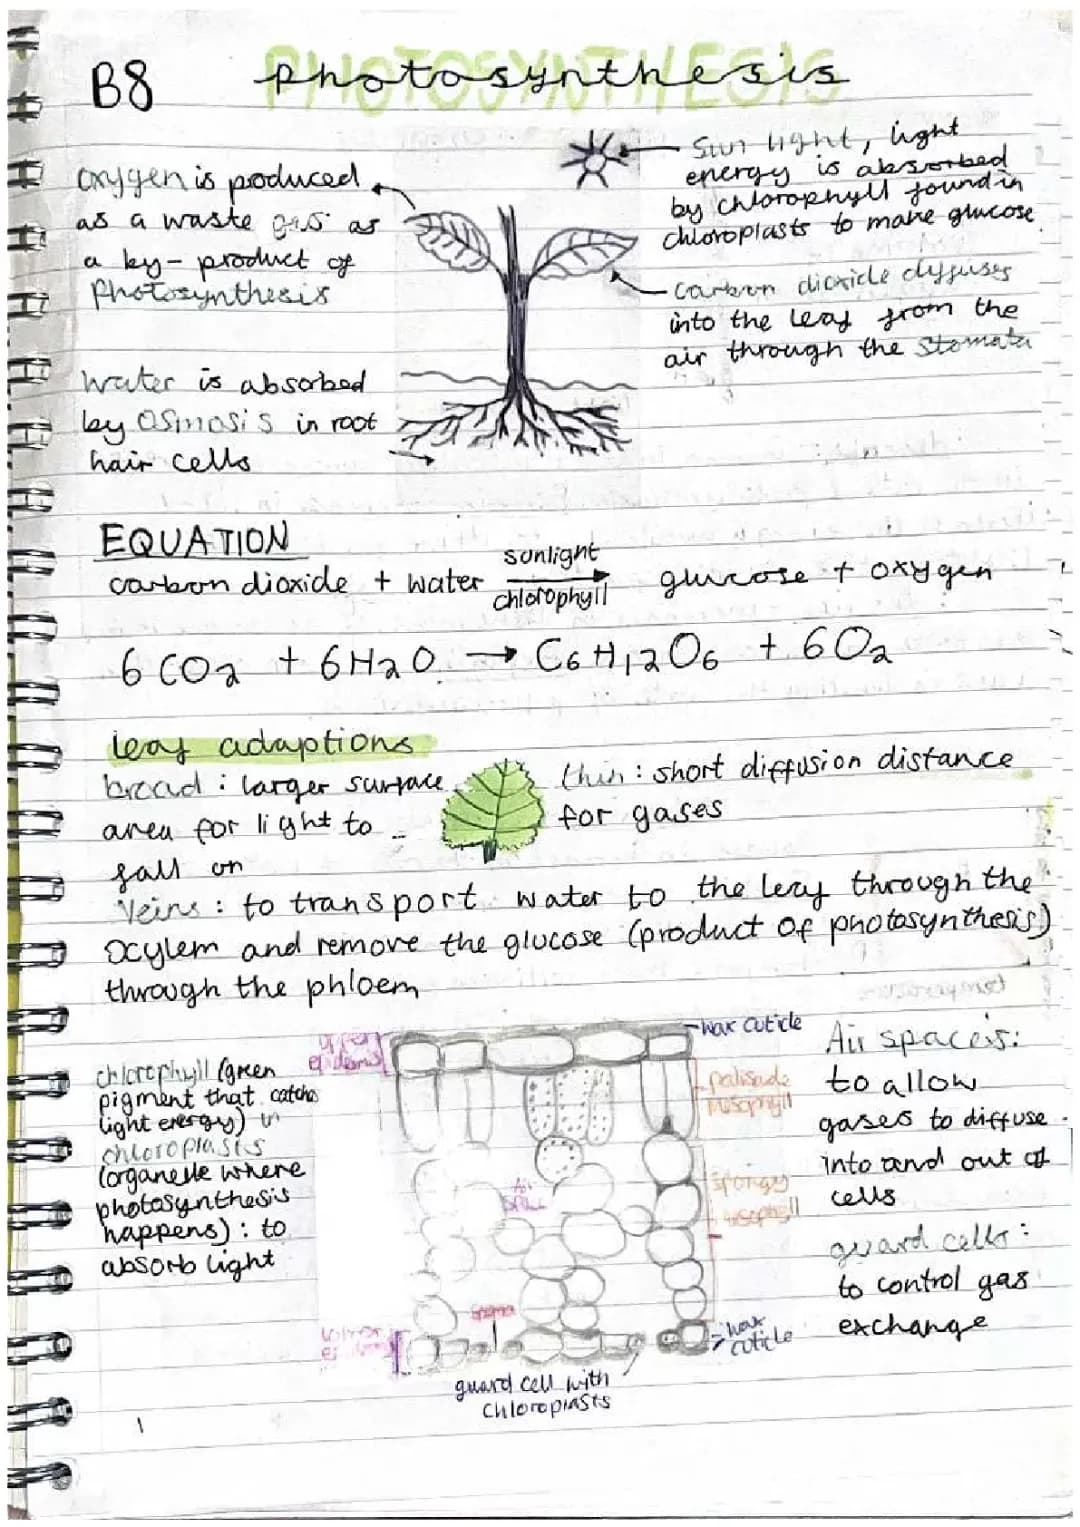 B8
PHOTOSYNTHESIS
photosynthesis
oxygen is produced
as a waste gas as
a by-product of
Photosynthesis
Sun light, light
energy is absorbed
by chlorophyll found in
chloroplasts to make glucose
carbon dioxide diffuses
into the leaf from the
air through the stomata
Water is absorbed
by osmosis in root
hair cells
EQUATION
carbon dioxide + water sunlight chlorophyll glucose + oxygen
6CO2 + 6H2O → C6H12O6 + 6O2
leaf adaptions
broad : larger surface
area for light to
fall on
thin : short diffusion distance
for gases
Veins : to transport water to the leaf through the
xylem and remove the glucose (product of photosynthesis)
through the phloem
chlorophyll (green
pigment that catchs
light energy) in
chloroplasts
(organelle where
photosynthesis
happens) : to
absorb light
upper
epidermis
wax cuticle
palisade
mesophyll
Air
space
spongy
mesophyll
stoma
lower
epidermis
wax
cuticle
guard cell with
chloroplasts
Air spaces:
to allow
gases to diffuse
into and out of
cells
guard cells :
to control gas
exchange
1